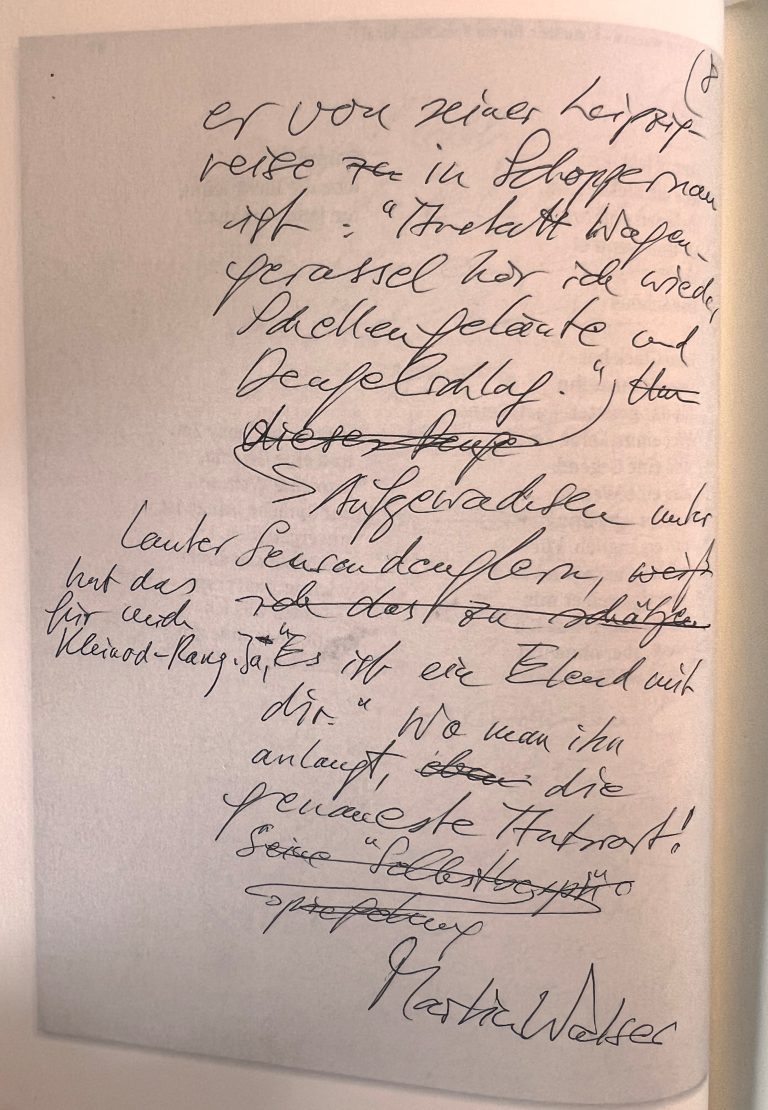 (8
er von seiner Leipzig-
reise zu in Schoppernau
ist: "Anstatt Wagen-
gerassel hör ich wieder
Schellengeläute und
Dengelschlag."
dieser Denge
Aufgewachsen unter
lauter Sensendenglern, weiß
ich das zu schätzen
hat das
für mich
Kleinod-Rang. Ja, "Es ist ein Elend mit
dir." Wo man ihn
anlangt, eben die
genaueste Antwort!
Seine "Selbstbespü
spiegelung
Martin Walser